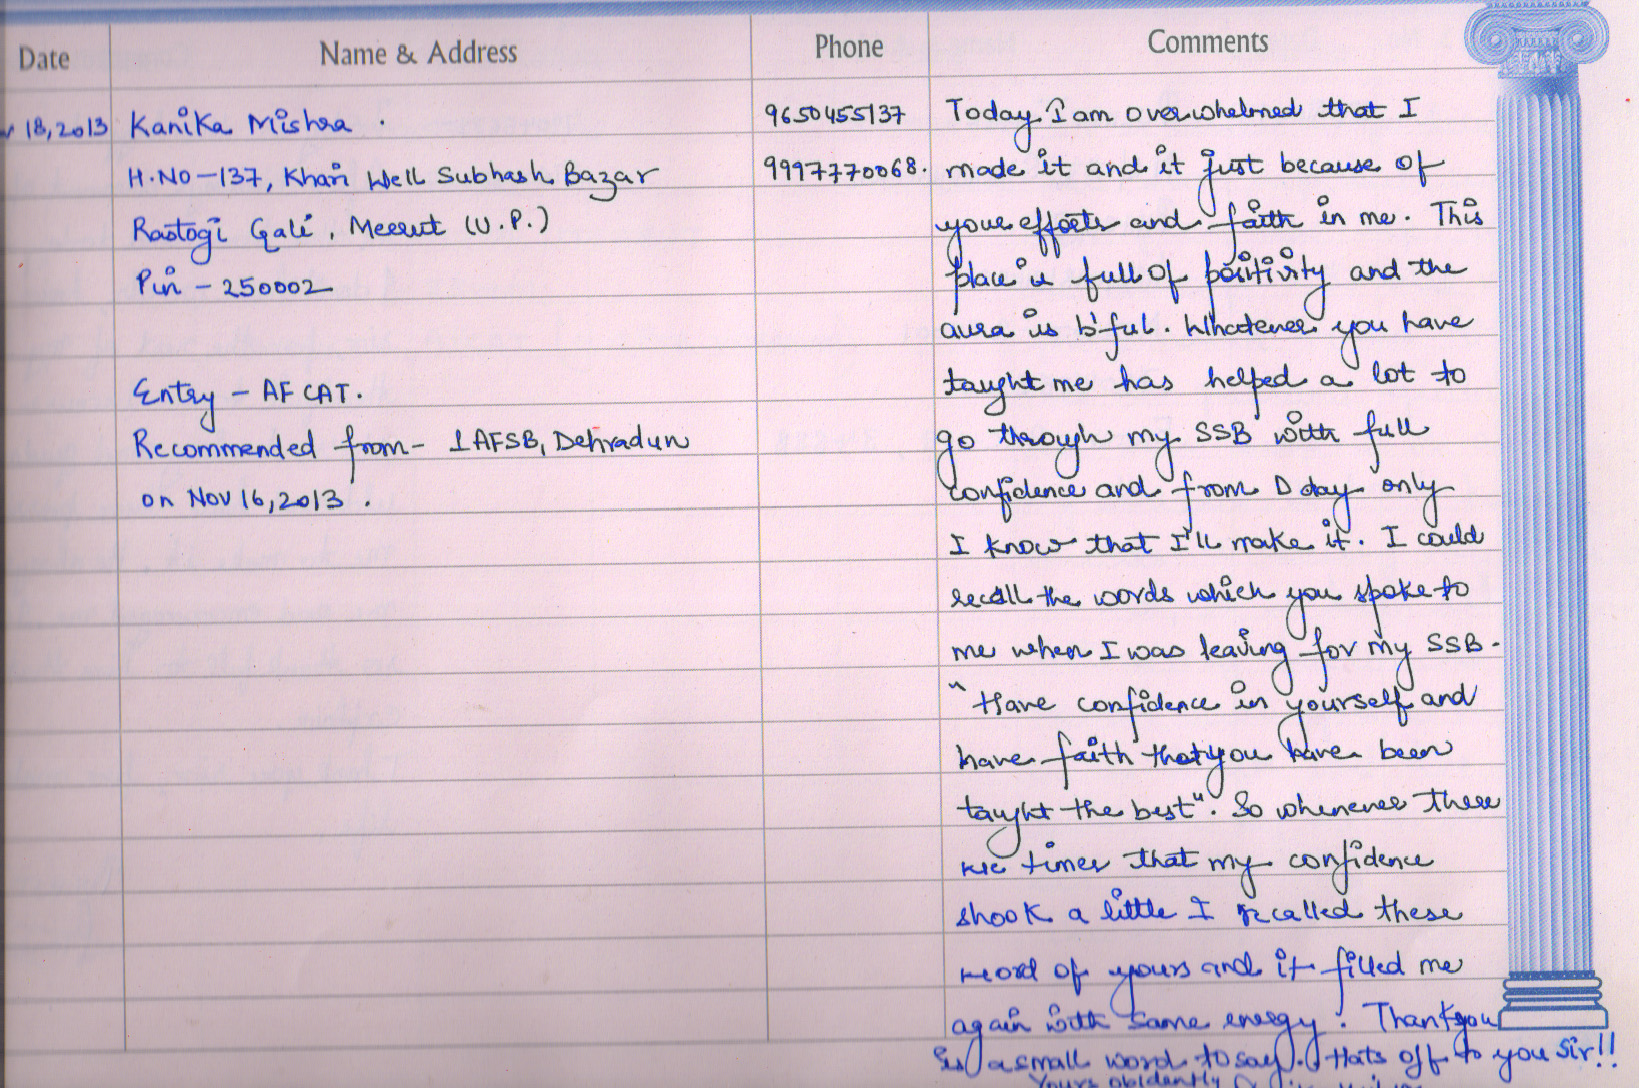 Date Name & Address Phone Comments
18, 2013 Kanika Mishra . 9650455137 Today I am overwhelmed that I
H.NO - 137, Khari Well Subhash Bazar 9997770068. made it and it just because of
Rastogi Gali, Meerut (U.P.) your efforts and faith in me. This
Pin - 250002 place is full of positivity and the
aura is b'ful. Whatever you have
Entry - AFCAT. taught me has helped a lot to
Recommended from - 1AFSB, Dehradun go through my SSB with full
on Nov 16, 2013 . confidence and from D day only
I know that I'll make it. I could
recall the words which you spoke to
me when I was leaving for my SSB.
"Have confidence in yourself and
have faith that you have been
taught the best". So whenever there
times that my confidence
shook a little I recalled these
word of yours and it filled me
again with same energy. Thankyou
is a small word to say. Hats off to you Sir!!
Yours obidently